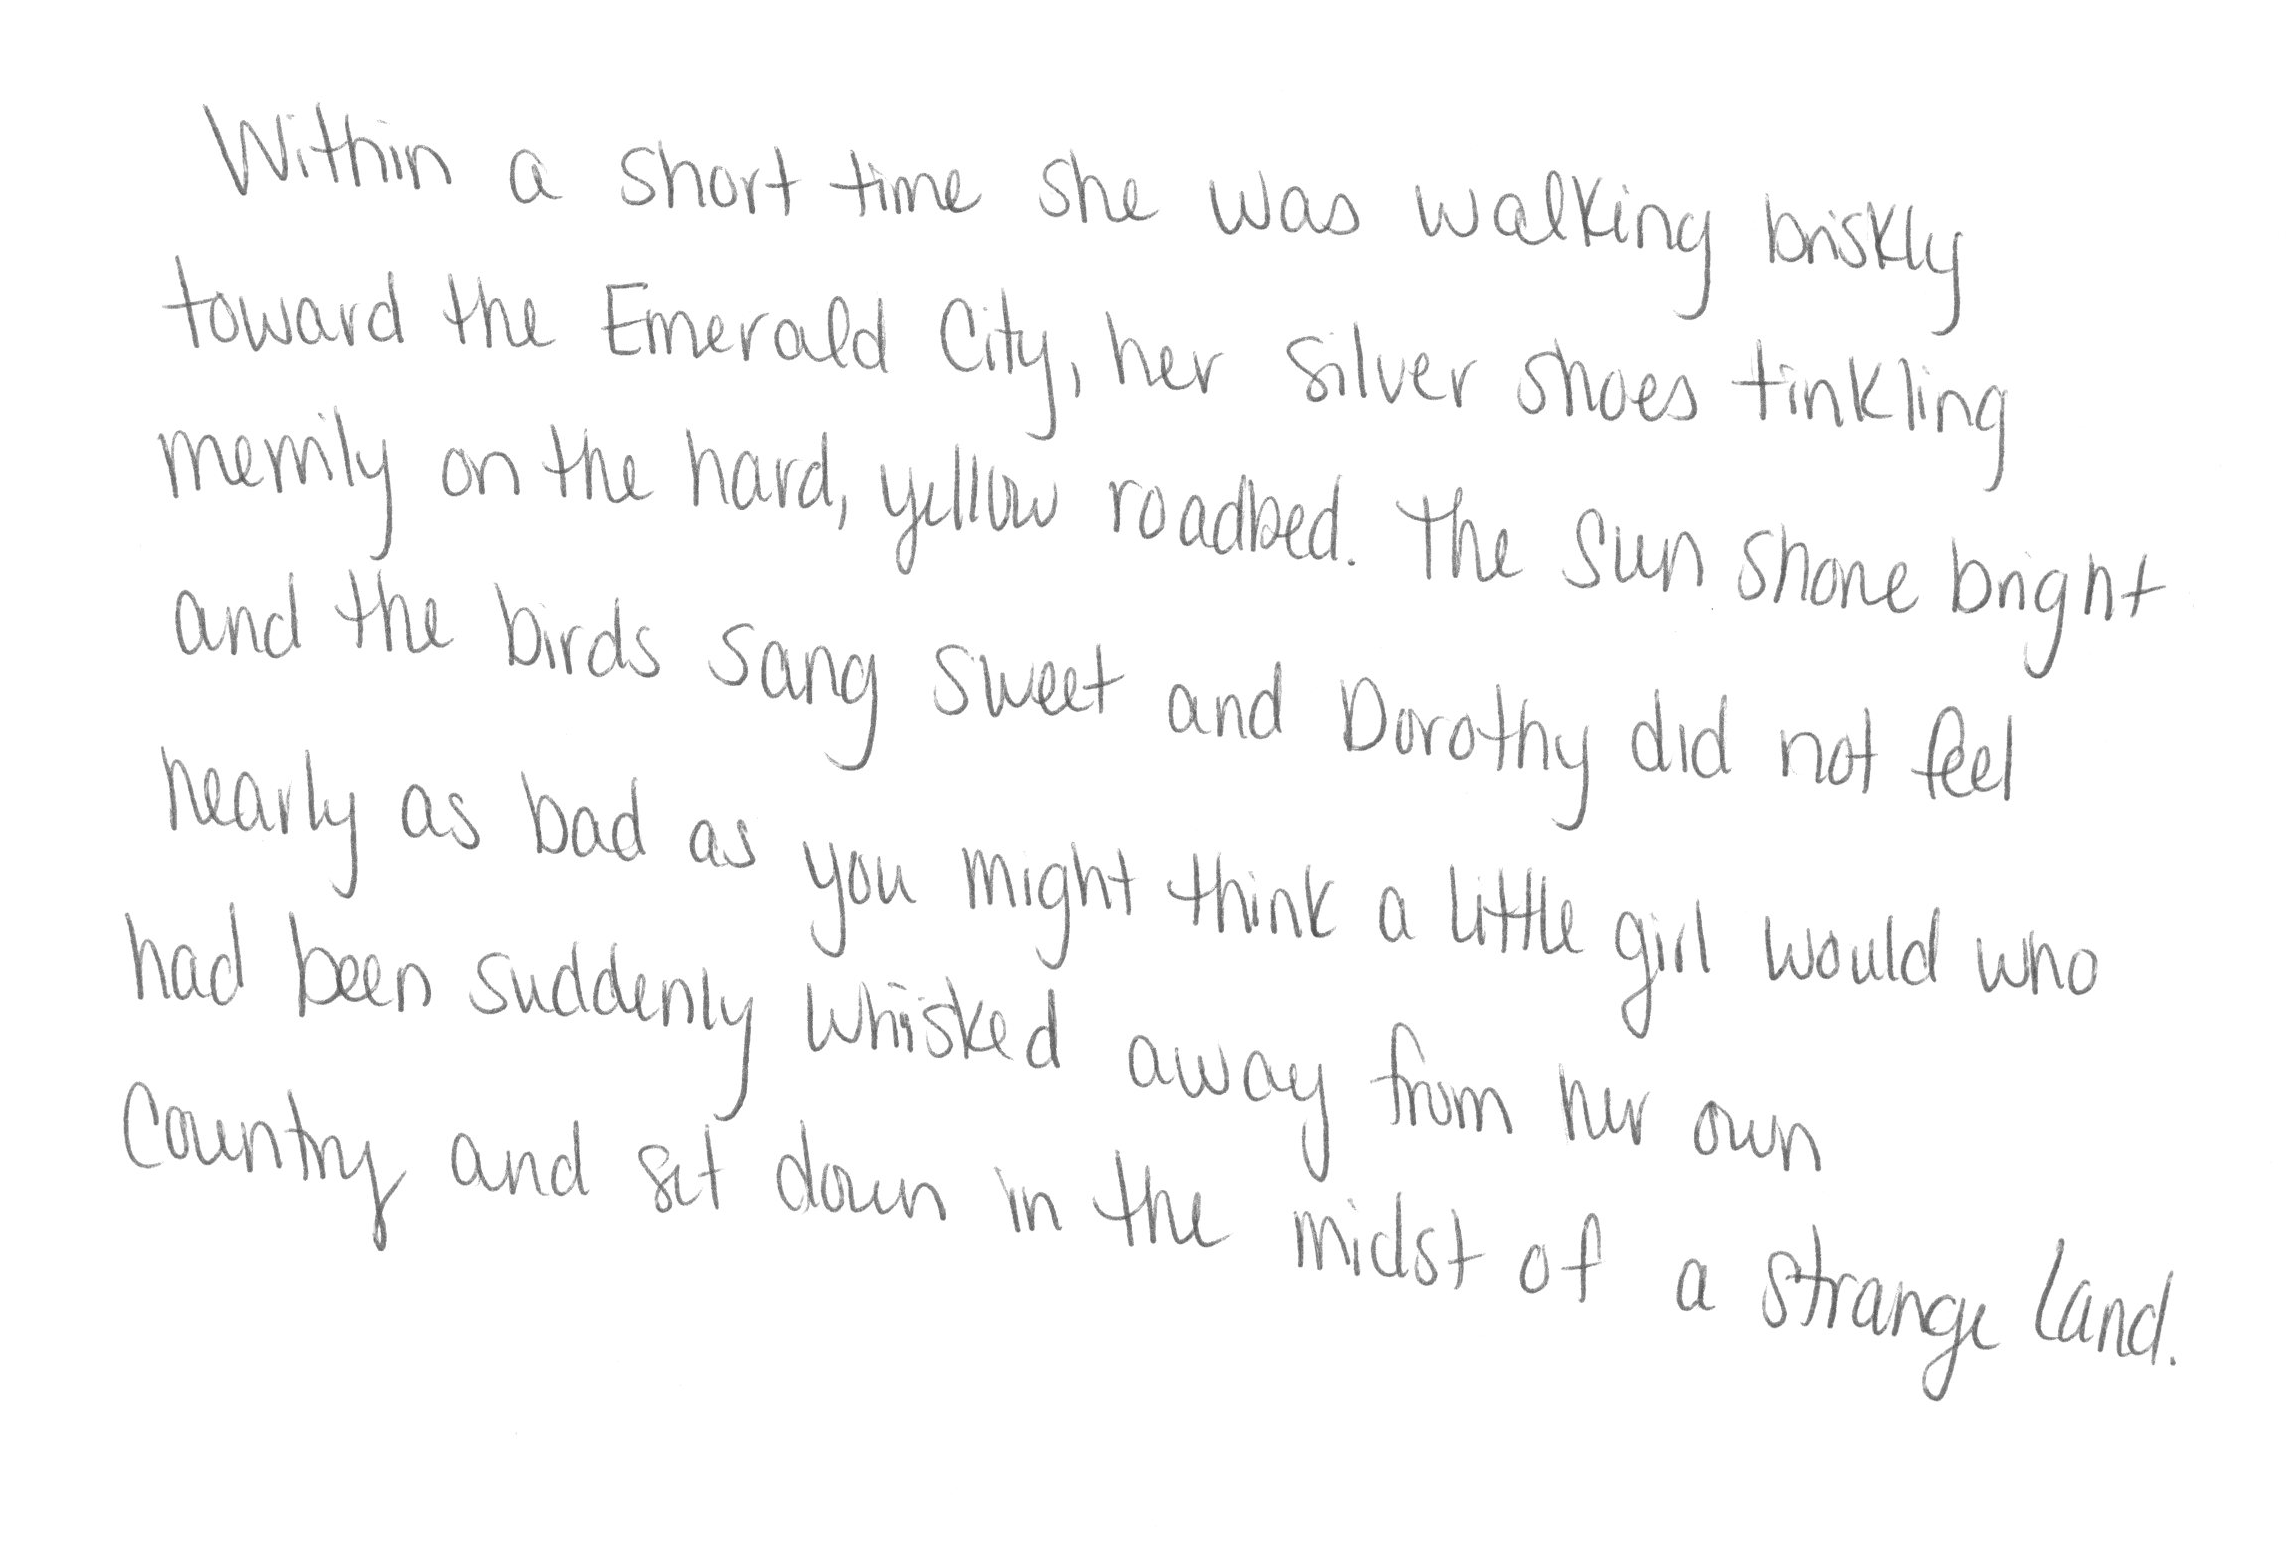 Within a short time she was walking briskly
toward the Emerald City, her silver shoes tinkling
merrily on the hard, yellow roadbed. The sun shone bright
and the birds sang sweet and Dorothy did not feel
nearly as bad as you might think a little girl would who
had been suddenly whisked away from her own
country and set down in the midst of a strange land.